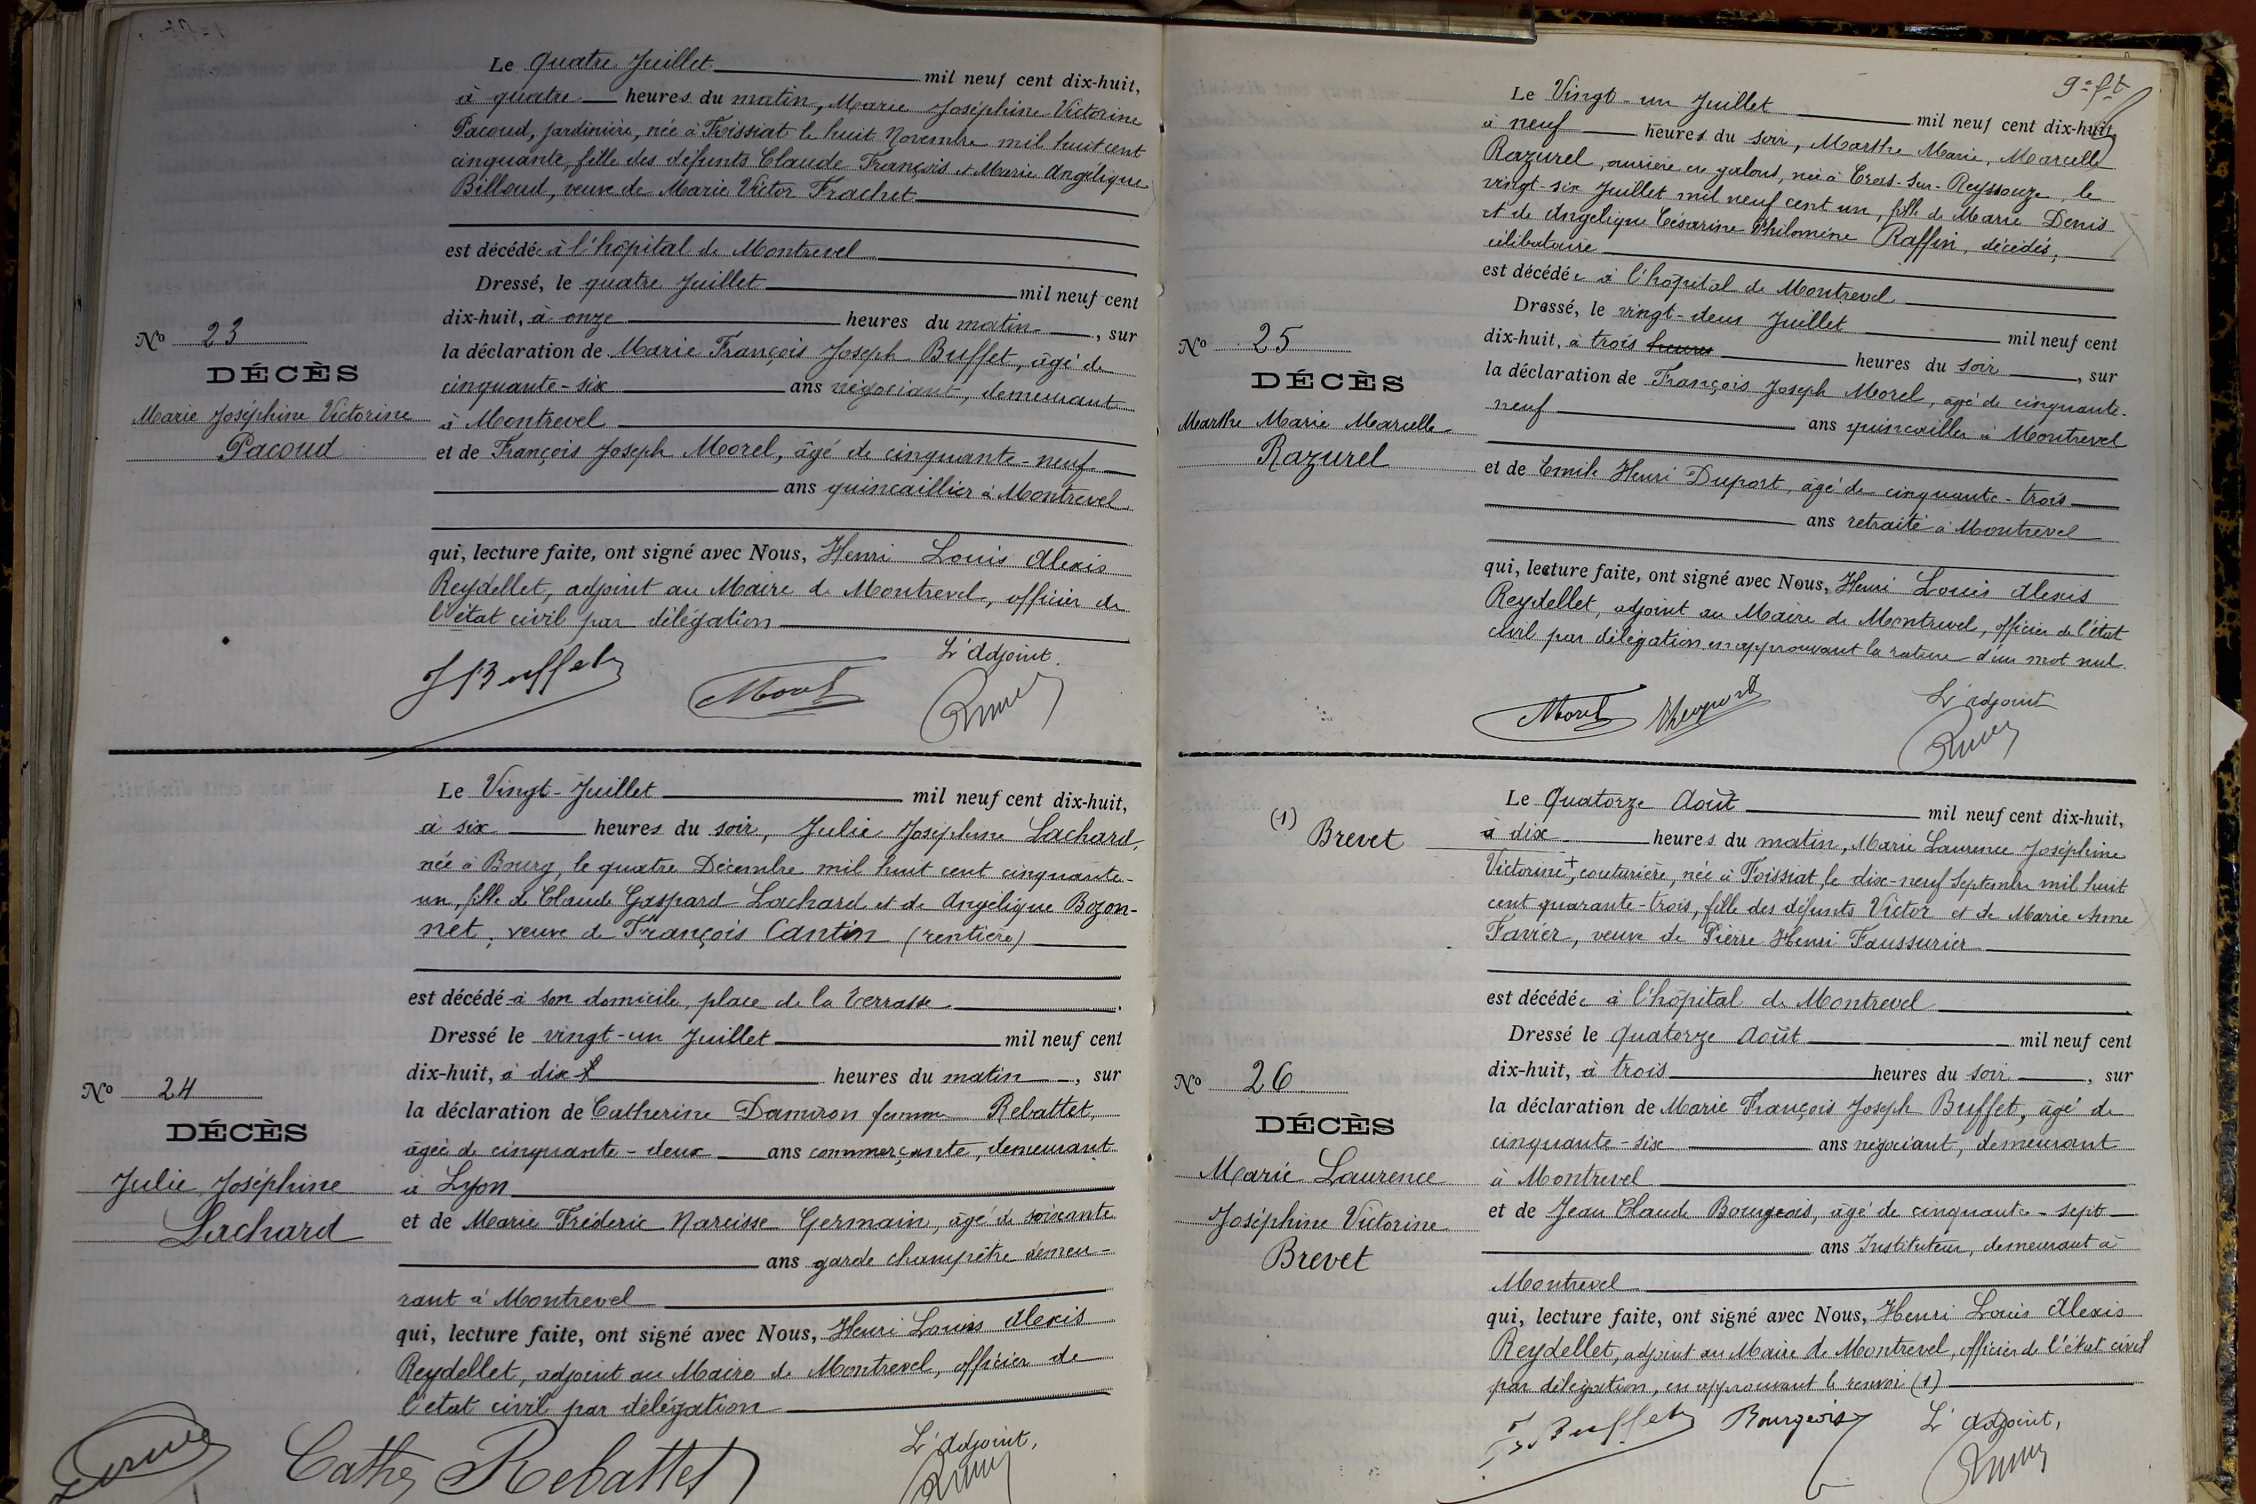 Le Quatre Juillet mil neuf cent dix-huit,
à quatre heures du matin, Marie Joséphine Victorine
Pacoud, jardinière, née à Foissiat le huit Novembre mil huit cent
cinquante, fille des défunts Claude François et Marie Angélique
Billoud, veuve de Marie Victor Frachet
est décédée à l'hôpital de Montrevel
Dressé, le quatre Juillet mil neuf cent
dix-huit, à onze heures du matin, sur
la déclaration de Marie François Joseph Buffet, âgé de
cinquante-six ans négociant, demeurant
à Montrevel
et de François Joseph Morel, âgé de cinquante-neuf
ans quincaillier à Montrevel
qui, lecture faite, ont signé avec Nous, Henri Louis Alexis
Reydellet, adjoint au Maire de Montrevel, officier de
l'état civil par délégation
No 23
DÉCÈS
Marie Joséphine Victorine
Pacoud
L'adjoint.
J Buffet
Morel
Le Vingt-Juillet mil neuf cent dix-huit,
à six heures du soir, Julie Joséphine Lachard,
née à Bourg, le quatre Décembre mil huit cent cinquante-
un, fille de Claude Gaspard Lachard et de Angélique Bozon-
net, veuve de François Cantin (rentière)
est décédé à son domicile, place de la Terrasse
Dressé le vingt-un Juillet mil neuf cent
dix-huit, à dix heures du matin, sur
la déclaration de Catherine Damiron femme Rebattet,
âgée de cinquante-deux ans commerçante, demeurant
à Lyon
et de Marie Fréderic Narcisse Germain, âgé de soixante
ans garde champêtre demeu-
rant à Montrevel
qui, lecture faite, ont signé avec Nous, Henri Louis Alexis
Reydellet, adjoint au Maire de Montrevel, officier de
l'état civil par délégation
No 24
DÉCÈS
Julie Joséphine
Lachard
L'adjoint,
Cathe Rebattet
9e ft
Le Vingt-un Juillet mil neuf cent dix-huit
à neuf heures du soir, Marthe Marie, Marcelle
Razurel, ouvrière en galons, née à Cras-sur-Reyssouze, le
vingt-six Juillet mil neuf cent un, fille de Marie Denis
et de Angélique Césarine Philomène Raffin, décédés,
célibataire
est décédée à l'hôpital de Montrevel
Dressé, le vingt-deux Juillet mil neuf cent
dix-huit, à trois heures heures du soir, sur
la déclaration de François Joseph Morel, âgé de cinquante-
neuf ans quincaillier à Montrevel
et de Emile Henri Duport, âgé de cinquante-trois
ans retraité à Montrevel
qui, lecture faite, ont signé avec Nous, Henri Louis Alexis
Reydellet, adjoint au Maire de Montrevel, officier de l'état
civil par délégation en approuvant la rature d'un mot nul.
No 25
DÉCÈS
Marthe Marie Marcelle
Razurel
L'adjoint
Morel
(1) Brevet
Le Quatorze Août mil neuf cent dix-huit,
à dix heures du matin, Marie Laurence Joséphine
Victorine +, couturière, née à Foissiat, le dix-neuf Septembre mil huit
cent quarante-trois, fille des défunts Victor et de Marie Anne
Favier, veuve de Pierre Henri Faussurier
est décédée à l'hôpital de Montrevel
Dressé le quatorze Août mil neuf cent
dix-huit, à trois heures du soir, sur
la déclaration de Marie François Joseph Buffet, âgé de
cinquante-six ans négociant, demeurant
à Montrevel
et de Jean Claude Bourgeois, âgé de cinquante-sept
ans Instituteur, demeurant à
Montrevel
qui, lecture faite, ont signé avec Nous, Henri Louis Alexis
Reydellet, adjoint au Maire de Montrevel, officier de l'état civil
par délégation, en approuvant le renvoi (1)
No 26
DÉCÈS
Marie Laurence
Joséphine Victorine
Brevet
Buffet Bourgeois L'adjoint,